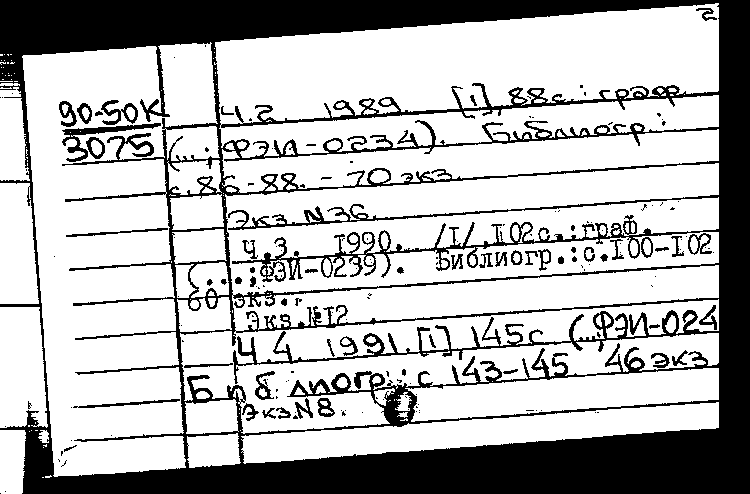 2
90-50К
3075
Ч.2. 1989. [1], 88с.: граф.
(...; ФЭИ-0234). Библиогр.:
с. 86-88. - 70 экз.
Экз. N 36.
Ч.3. 1990. /I/, I02с.:граф.
(...;ФЭИ-0239). Библиогр.:с.I00-I02
60 экз.
Экз.№I2.
Ч.4. 1991. [1], 145с (...ФЭИ-024
Библиогр.: с. 143-145 46 экз
Экз. N8.